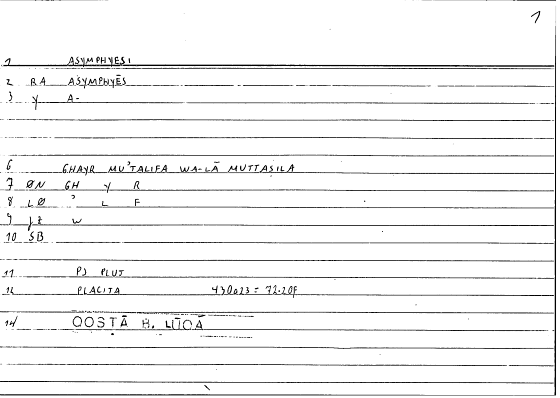 1
1 ASYMPHYESI
2 RA ASYMPHYĒS
3 Y A-
6 GHAYR MU'TALIFA WA-LĀ MUTTASILA
7 ØN GH Y R
8 LØ ' L F
9 W
10 SB
11 PS PLUT
12 PLACITA 430a23 = 72.20F
14 QOSTĀ B. LŪQĀ